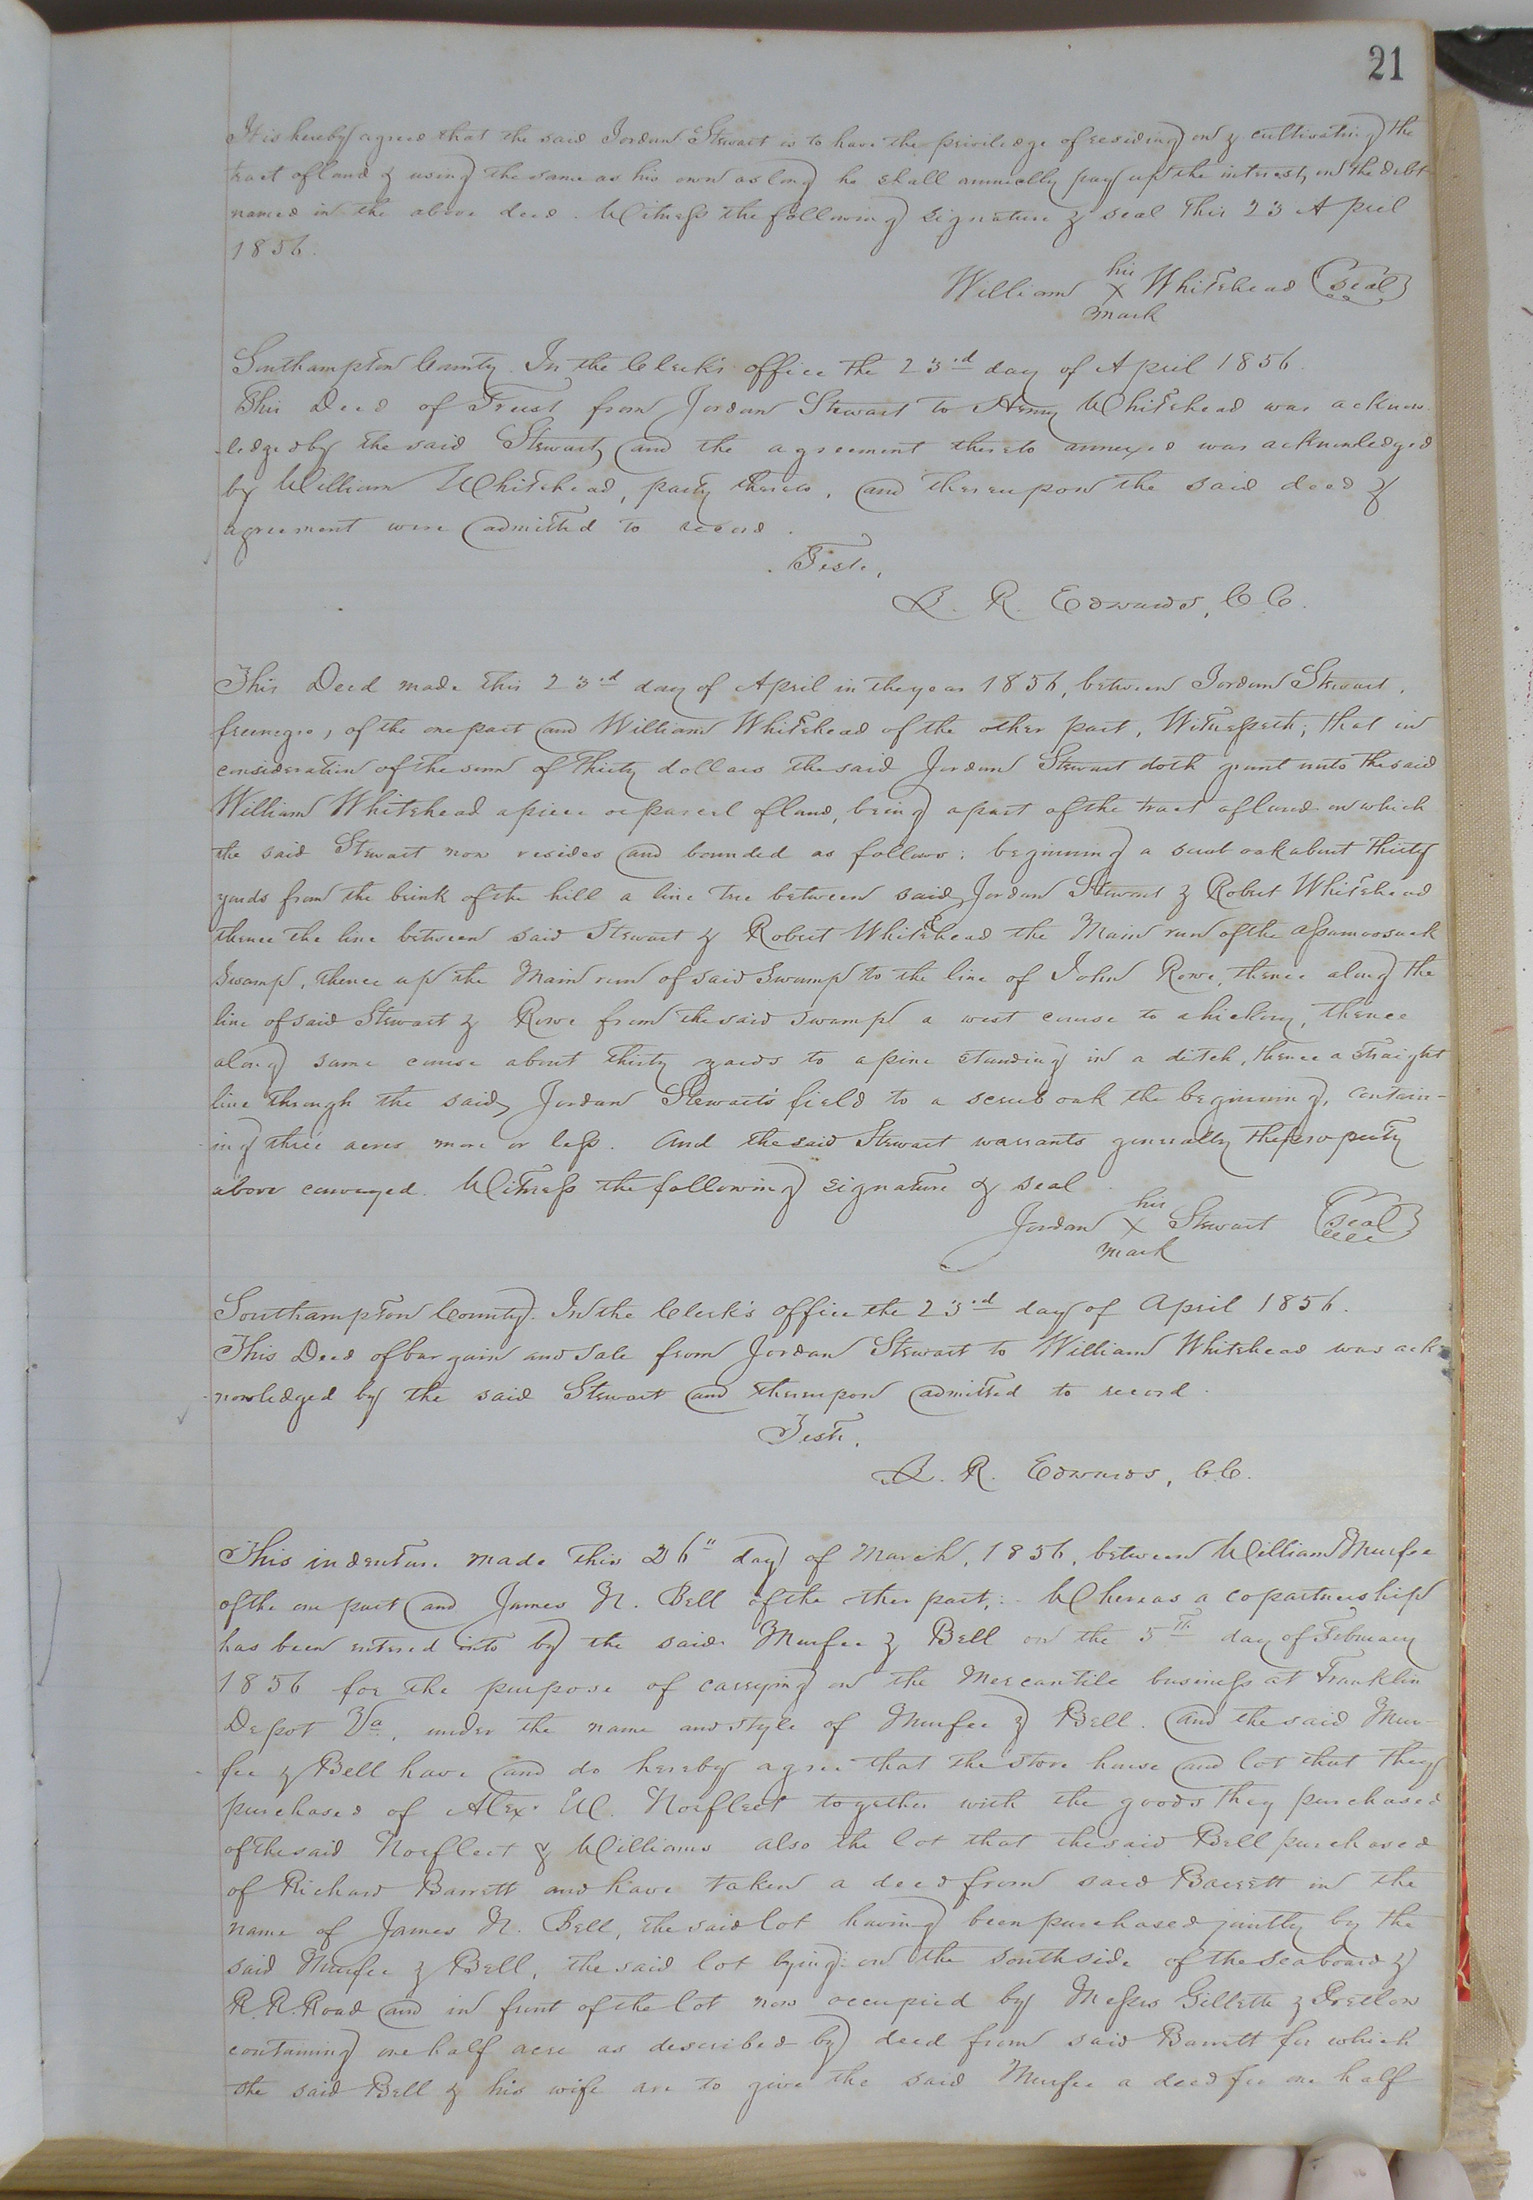 21
It is hereby agreed that the said Jordan Stewart is to have the priviledge of residing on & cultivating the
tract of land & using the same as his own as long he shall annually pay up the interest on the debt
named in the above deed. Witness the following signature & seal This 23 April
1856.
his
William X Whitehead (seal)
mark
Southampton County. In the Clerk's office the 23rd day of April 1856.
This Deed of Trust from Jordan Stewart to Henry Whitehead was acknow
-ledged by the said Stewart, and the agreement thereto annexed was acknowledged
by William Whitehead, party thereto, and thereupon the said deed &
agreement were admitted to record.
Teste,
L. R. Edwards, C C.
This Deed made this 23rd day of April in the year 1856, between Jordan Stewart,
free negro, of the one part and William Whitehead of the other part, Witnesseth; that in
consideration of the sum of thirty dollars the said Jordan Stewart doth grant unto the said
William Whitehead a piece or parcel of land, being a part of the tract of land on which
the said Stewart now resides and bounded as follows; beginning a scrub oak about thirty
yards from the brink of the hill a line tree between said Jordan Stewart & Robert Whitehead
thence the line between said Stewart & Robert Whitehead the Main run of the Assamoosuck
Swamp, thence up the Main run of said Swamp to the line of John Rowe, thence along the
line of said Stewart & Rowe from the said Swamp a west course to a hickory, thence
along same course about thirty yards to a pine standing in a ditch, thence a straight
line through the said, Jordan Stewart's field to a scrub oak the beginning, contain-
ing three acres more or less. And the said Stewart warrants generally the property
above conveyed. Witness the following signature & seal.
his
Jordan X Stewart (seal)
mark
Southampton County. In the Clerk's office the 23rd day of April 1856.
This Deed of bargain and sale from Jordan Stewart to William Whitehead was ack-
nowledged by the said Stewart and thereupon admitted to record.
Teste,
L. R. Edwards, C.C.
This indenture made this 26" day of March, 1856, between William Murfee
of the one part and James N. Bell of the other part; Whereas a copartnership
has been entered into by the said Murfee & Bell on the 5th day of February
1856 for the purpose of carrying on the Mercantile business at Franklin
Depot Va, under the name and style of Murfee & Bell. And the said Mur-
fee & Bell have and do hereby agree that the store house and lot that they
purchased of Alexr W. Norfleet together with the goods they purchased
of the said Norfleet & Williams also the lot that the said Bell purchased
of Richard Barrett and have taken a deed from said Barrett in the
name of James N. Bell, the said lot having been purchased jointly by the
said Murfee & Bell, the said lot lying on the south side of the seaboard &
R. R. Road and in front of the lot now occupied by Messrs Gillette & Pretlow
containing one half acre as described by deed from said Barrett for which
the said Bell & his wife are to give the said Murfee a deed for one half